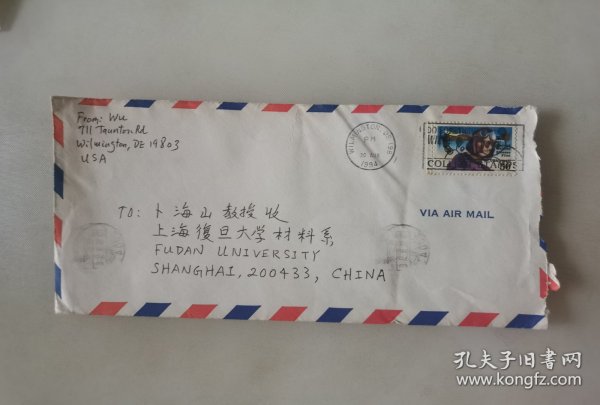 From: Wu
711 Taunton Rd
Wilmington, DE 19803
USA
WILMINGTON, DE 198
PM
30 MAR
1994
VIA AIR MAIL
TO: 卜海山教授收
上海復旦大学材料系
FUDAN UNIVERSITY
SHANGHAI, 200433, CHINA
孔夫子旧书网
www.kongfz.com